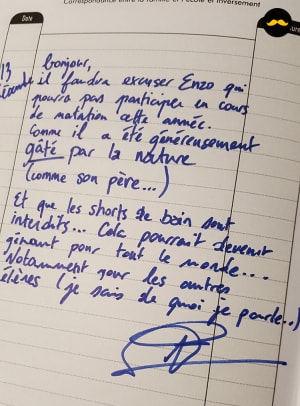 Correspondance entre la famille et l'école et inversement
Date
13
décembre
Bonjour,
il faudra excuser Enzo qui
pourra pas participer en cours
de natation cette année.
Comme il a été généreusement
gâté par la nature
(comme son père...)
Et que les shorts de bain sont
interdits... Cela pourrait devenir
gênant pour tout le monde...
Notamment pour les autres
élèves (je sais de quoi je parle..)